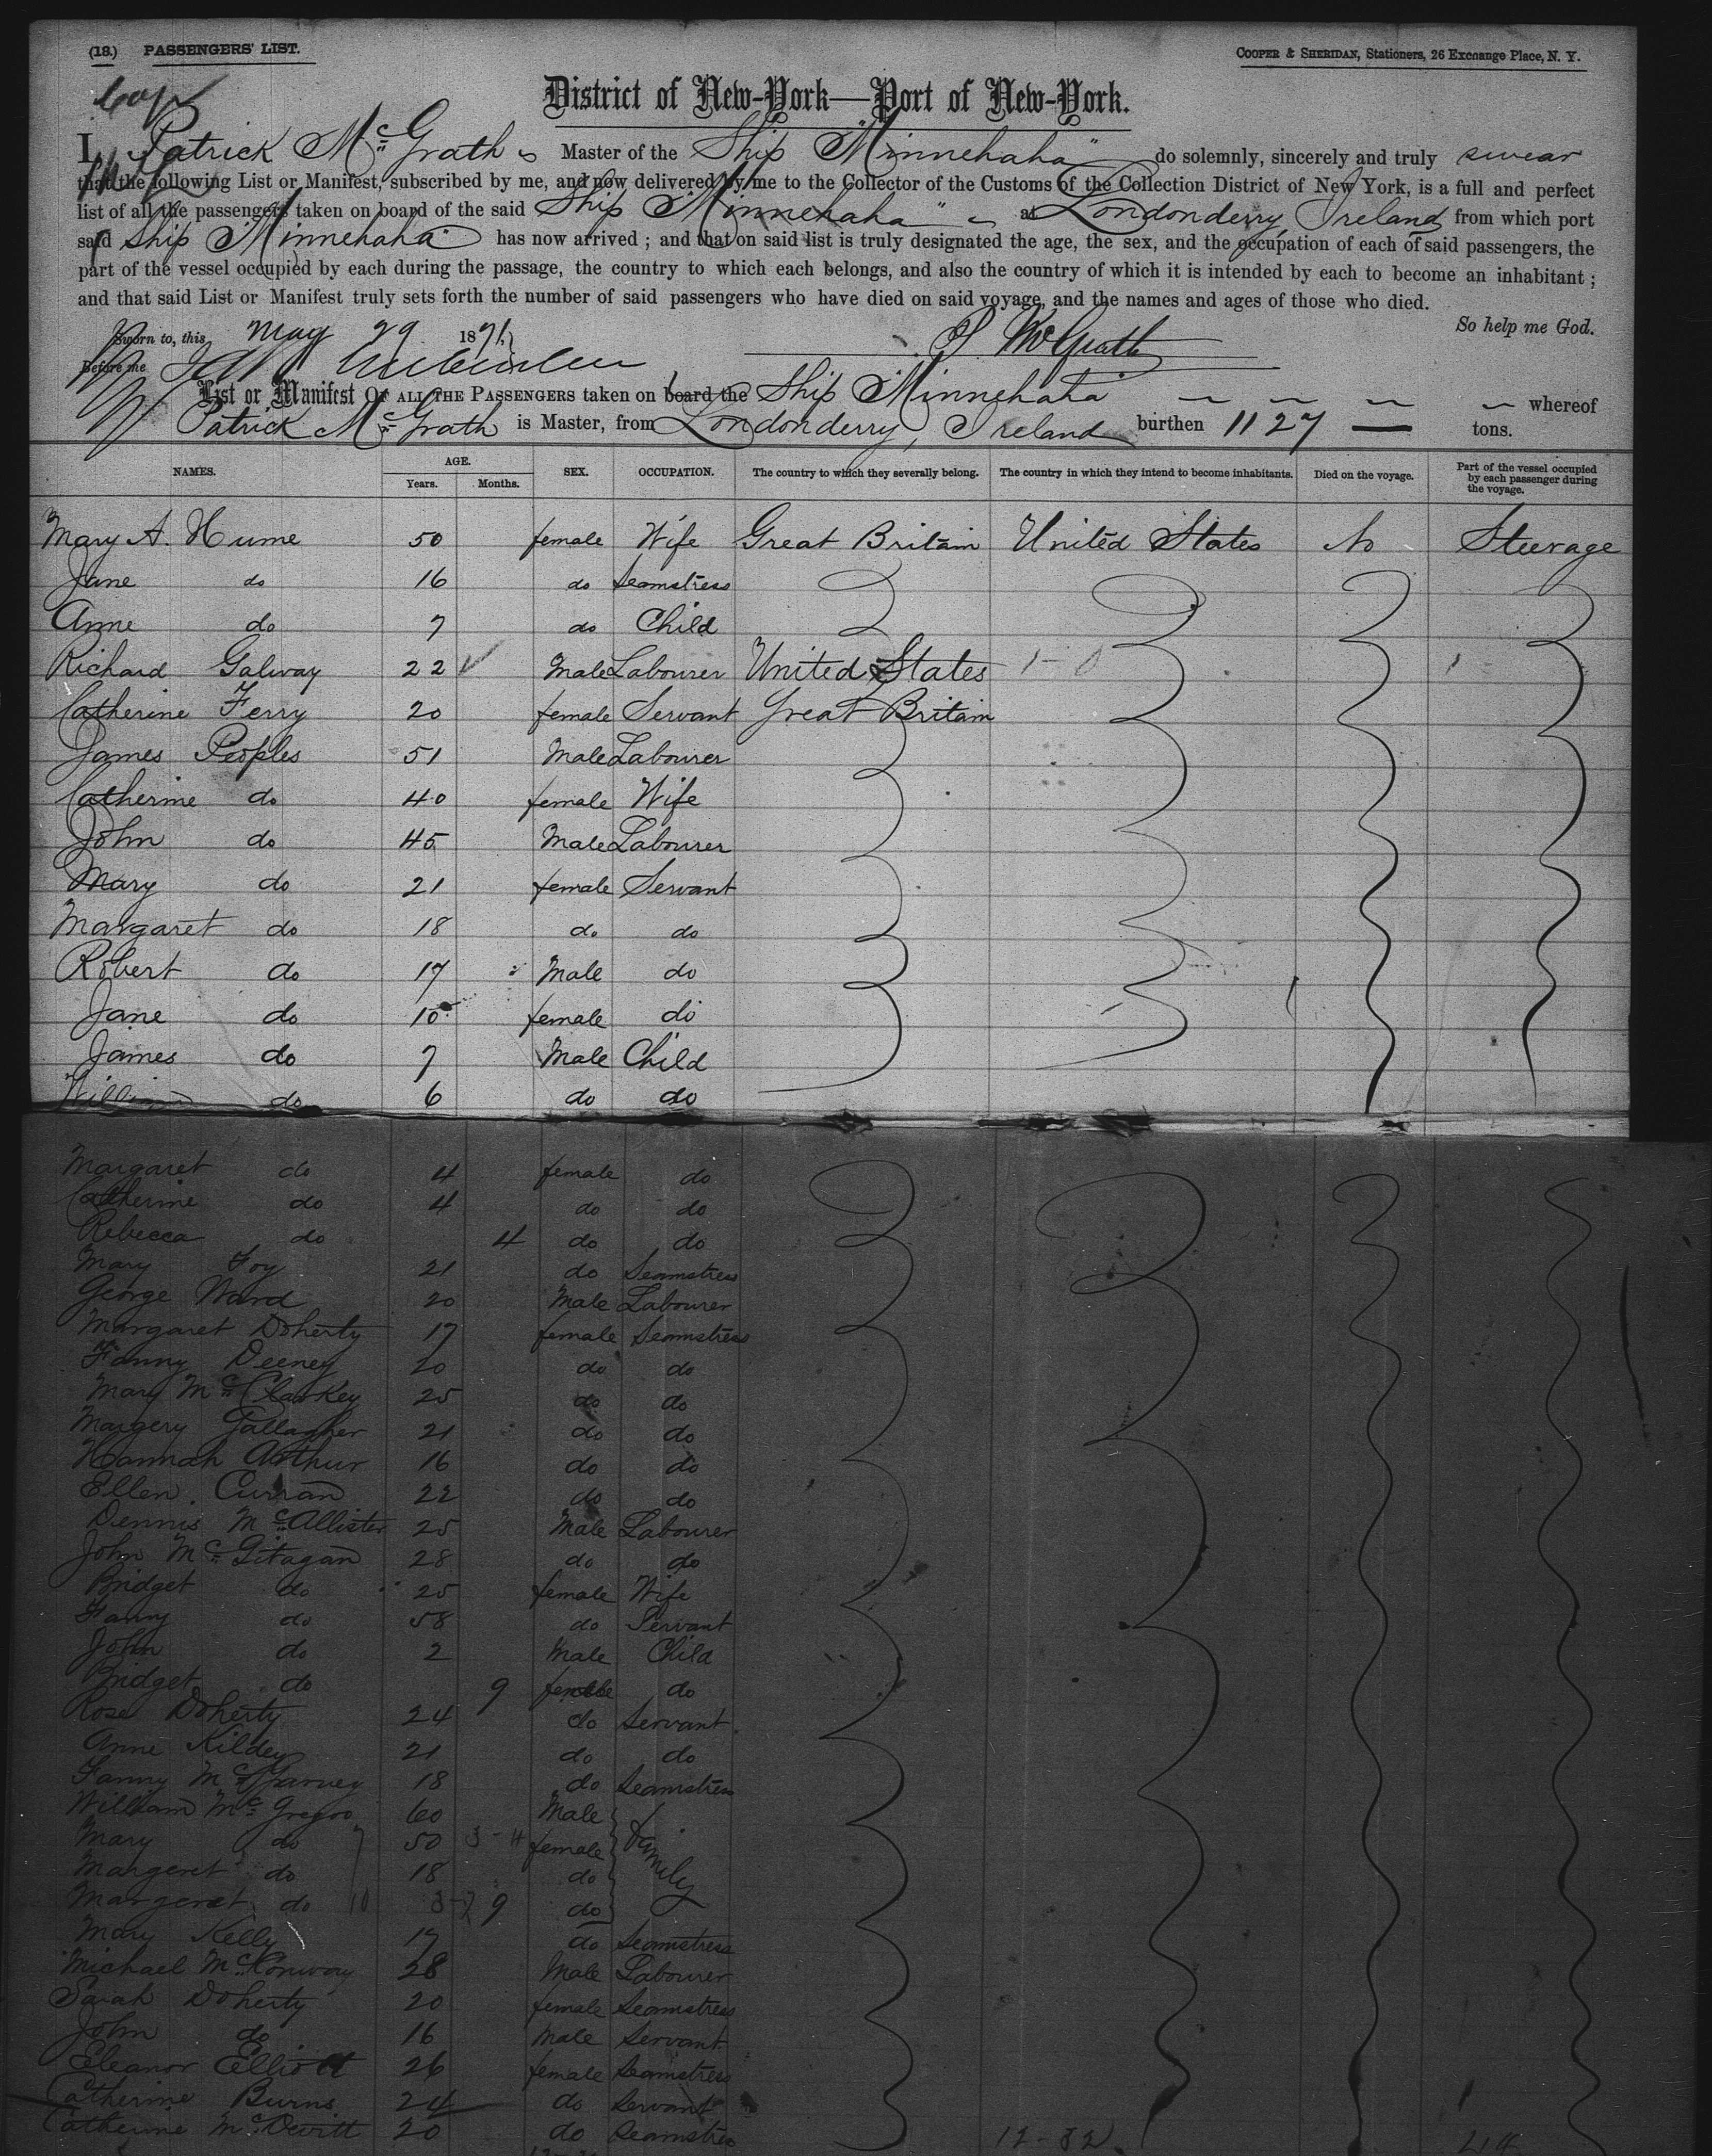 (18.) PASSENGERS' LIST.
COOPER & SHERIDAN, Stationers, 26 Exchange Place, N. Y.
District of New-York—Port of New-York.
I, Patrick McGrath Master of the Ship "Minnehaha" do solemnly, sincerely and truly swear
that the following List or Manifest, subscribed by me, and now delivered by me to the Collector of the Customs of the Collection District of New York, is a full and perfect
list of all the passengers taken on board of the said Ship "Minnehaha" at Londonderry, Ireland from which port
said Ship Minnehaha has now arrived ; and that on said list is truly designated the age, the sex, and the occupation of each of said passengers, the
part of the vessel occupied by each during the passage, the country to which each belongs, and also the country of which it is intended by each to become an inhabitant ;
and that said List or Manifest truly sets forth the number of said passengers who have died on said voyage, and the names and ages of those who died.
So help me God.
Sworn to, this May 29 1871
P McGrath
Before me
List or Manifest OF ALL THE PASSENGERS taken on board the Ship Minnehaha whereof
Patrick McGrath is Master, from Londonderry, Ireland burthen 1127 tons.
NAMES. AGE. SEX. OCCUPATION. The country to which they severally belong. The country in which they intend to become inhabitants. Died on the voyage. Part of the vessel occupied by each passenger during the voyage.
Years. Months.
Mary A. Hume 50 female Wife Great Britain United States No Steerage
Jane do 16 do Seamstress
Anne do 7 do Child
Richard Galway 22 Male Labourer United States
Catherine Ferry 20 female Servant Great Britain
James Peoples 51 Male Labourer
Catherine do 40 female Wife
John do 45 Male Labourer
Mary do 21 female Servant
Margaret do 18 do do
Robert do 17 Male do
Jane do 10 female do
James do 7 Male Child
William do 6 do do
Margaret do 4 female do
Catherine do 4 do do
Rebecca do 4 do do
Mary Foy 21 do Seamstress
George Ward 20 Male Labourer
Margaret Doherty 17 female Seamstress
Fanny Deeney 20 do do
Mary McClarkey 25 do do
Margery Gallagher 21 do do
Hannah Arthur 16 do do
Ellen Curran 22 do do
Dennis McAllister 25 Male Labourer
John McGitagan 28 do do
Bridget do 25 female Wife
Fanny do 58 do Servant
John do 2 Male Child
Bridget do 9 female do
Rose Doherty 24 do Servant
Anne Kildey 21 do do
Fanny McGarvey 18 do Seamstress
William McGregor 60 Male
Mary do 50 female family
Margeret do 18 do
Margeret do 9 do
Mary Kelly 17 do Seamstress
Michael McConway 28 Male Labourer
Sarah Doherty 20 female Seamstress
John do 16 Male Servant
Eleanor Elliott 26 female Seamstress
Catherine Burns 24 do Servant
Catherine McDevitt 20 do Seamstress
12-32